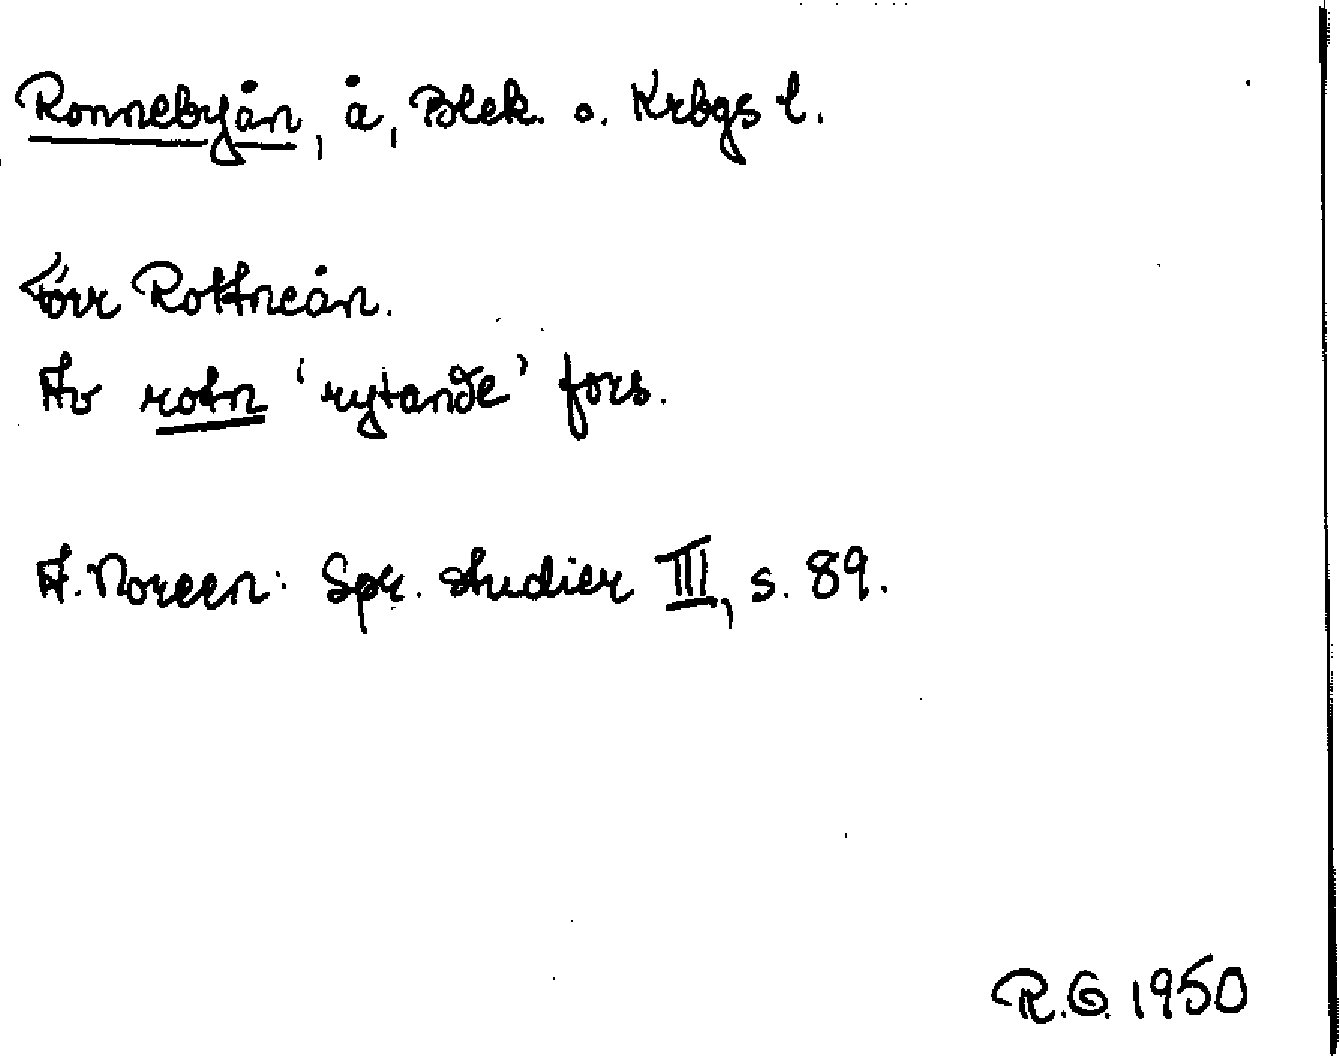 Ronnebyån, å, Blek. o. Krbgs l.
Förr Rottneån.
Av rotn 'rytande' fors.
A. Noreen: Spr. studier III, s. 89.
R.G. 1950